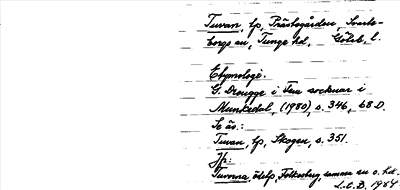 Tuvan, lp, Prästegården, Svarte-
borgs sn, Tunge hd, Göteb. l.
Etymologi.
G. Drougge i Fem socknar i
Munkedal, (1980), s. 346, 68 D.
Se äv.:
Tuvan, lp, Skogen, s. 351.
Jfr:
Tuvorna, ödelp, samma sn o. hd.
1984